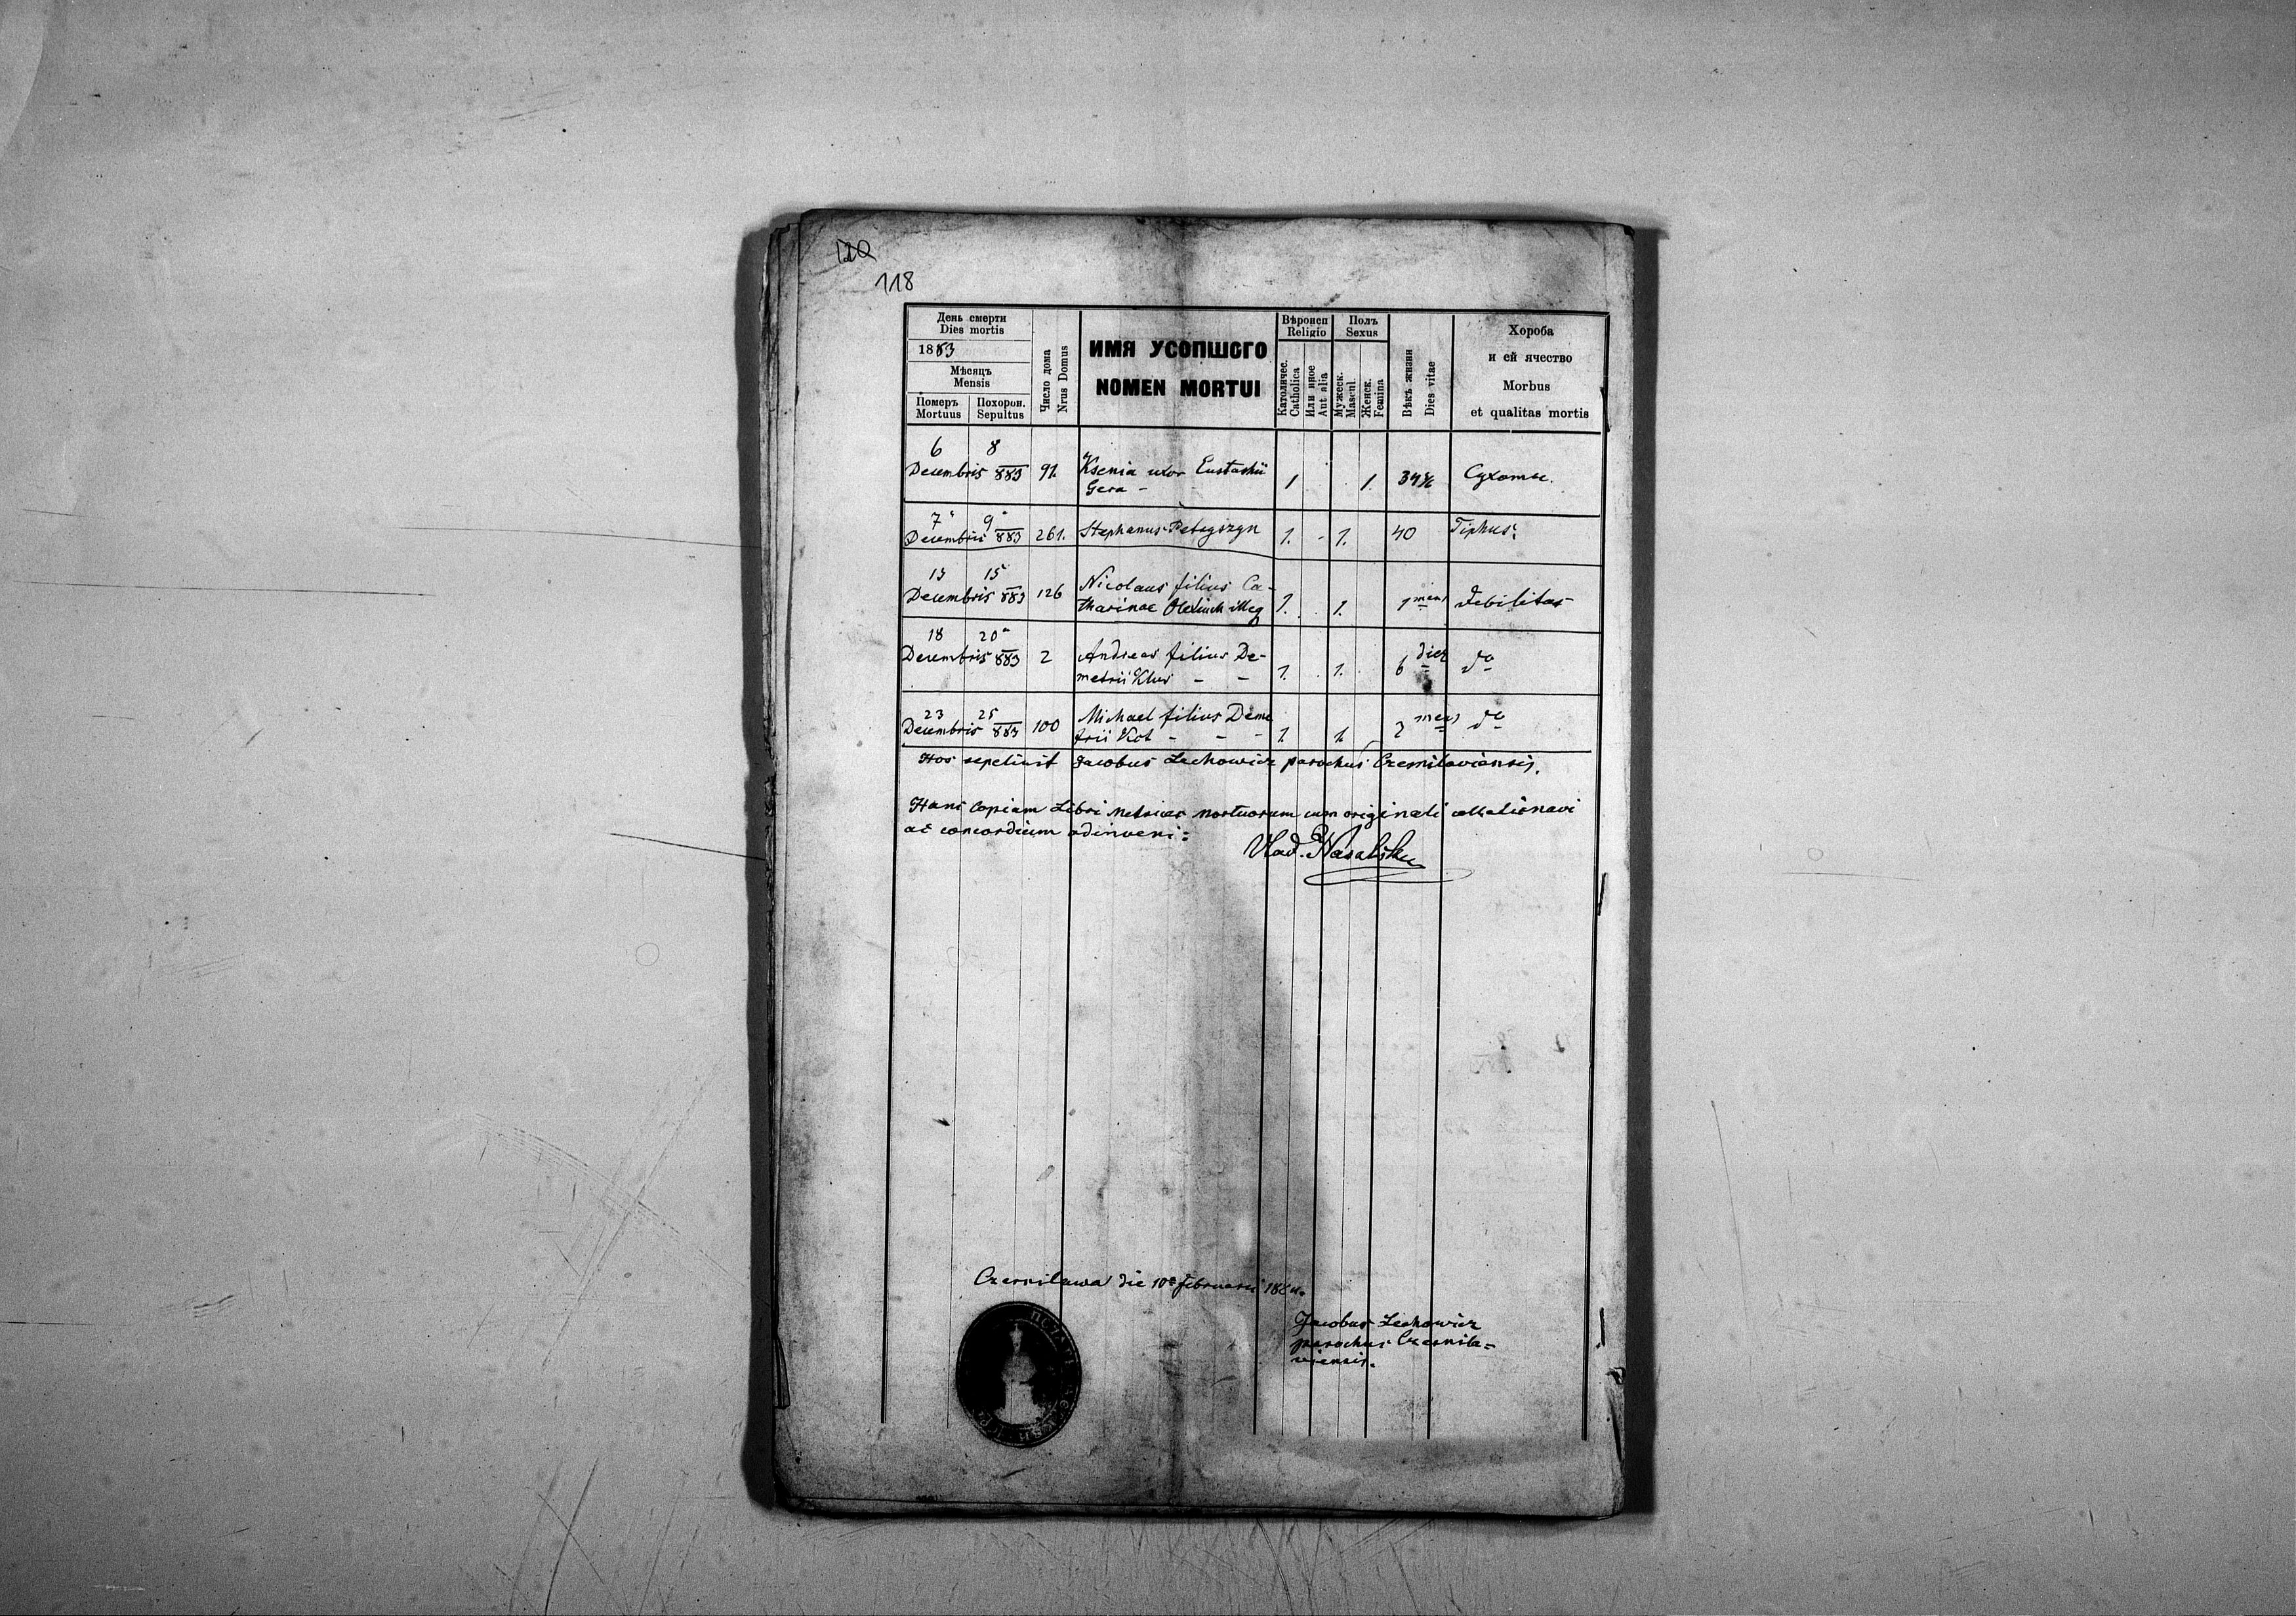 120
118
День смерти
Dies mortis
1883
Мѣсяць
Mensis
Померъ Похорон.
Mortuus Sepultus
Число дома
Nrus Domus
ИМЯ УСОПШОГО
NOMEN MORTUI
Вѣроисп
Religio
Католичес.
Catholica
Или иное
Aut alia
Полъ
Sexus
Мужеск.
Mascul.
Женск.
Femina
Вѣкъ жизни
Dies vitae
Хороба
и ей ячество
Morbus
et qualitas mortis
6 8
Decembris 883 91. Ksenia uxor Eustachii
Gera - 1 1. Сухоты.
7 9
Decembris 883 261. Stephanus 1. - 1. 40 Tiphus.
13 15
Decembris 883 126 Nicolaus filius Ca-
tharinae illeg 1. 1. 1 mens Debilitas
18 20
Decembris 883 2 Andreas filius De-
metrii - - 1. 1. 6 dies do
23 25
Decembris 883 100 Michael filius Deme
trii Kot - - - 1 1 2 mens do
Hos sepelivit Jacobus Lechowicz parochus Czernilaviensis.
Hanc Copiam Libri Metrices mortuorum cum originali collationavi
ac concordicum adinveni:
Vlad.
Czernilawa die 10 februarii 1884.
Jacobus Lechowicz
parochus Czernila-
viensis.